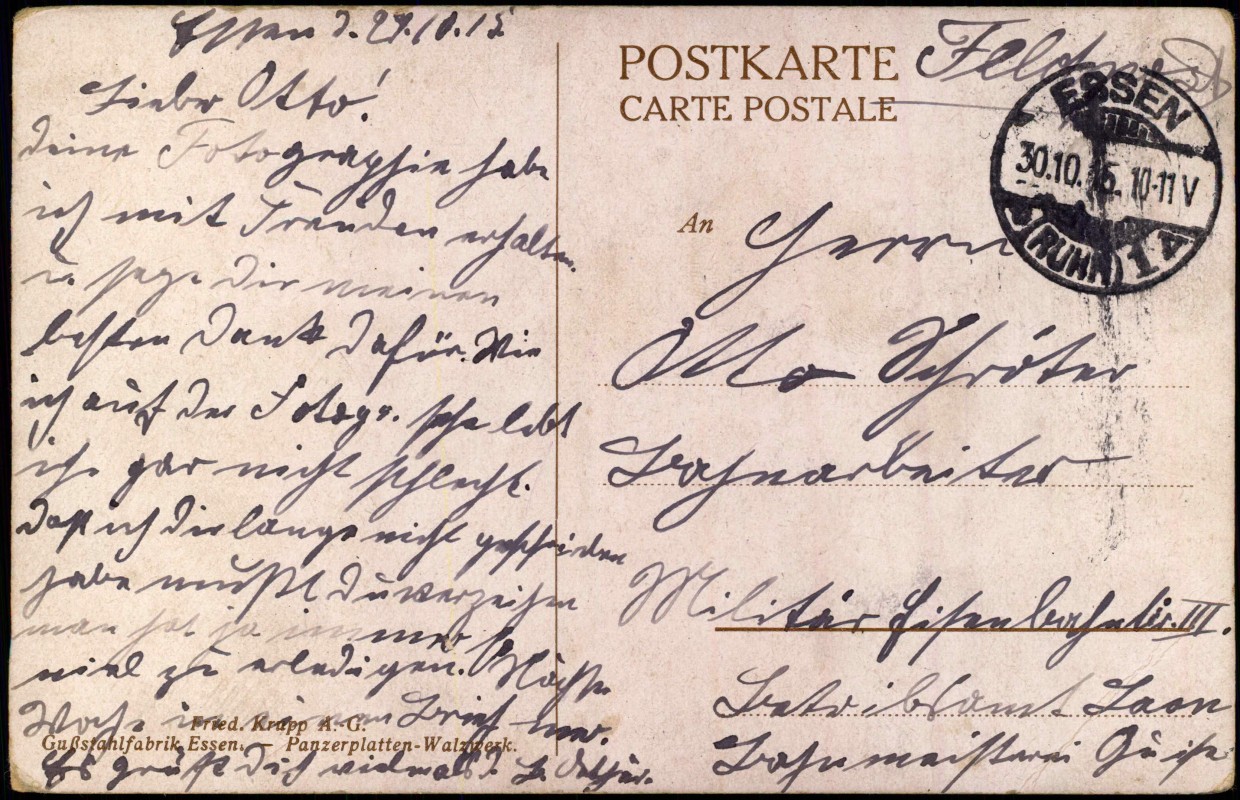 Essen d. 27.10.15
Lieber Otto!
deine Fotographie habe
ich mit Freuden erhalten.
u. sage dir meinen
besten Dank dafür. Wie
ich auf der Fotogr. sehe lebt
ihr gar nicht schlecht.
Daß ich dir lange nicht geschrieben
habe mußt Du verzeihen
man hat ja immer so
viel zu erledigen. Nächste
Woche einen Brief
Fried. Krupp A.-G.
Gußstahlfabrik Essen. — Panzerplatten-Walzwerk.
Es grüßt dich vielmals d.
POSTKARTE
CARTE POSTALE
Feldpost
ESSEN
30.10.15. 10-11 V
(RUHR) 1
An Herrn
Otto Schröter
Bahnarbeiter
Militär Eisenbahndir. III.
Betriebsamt Laon
Bahnmeisterei Guise